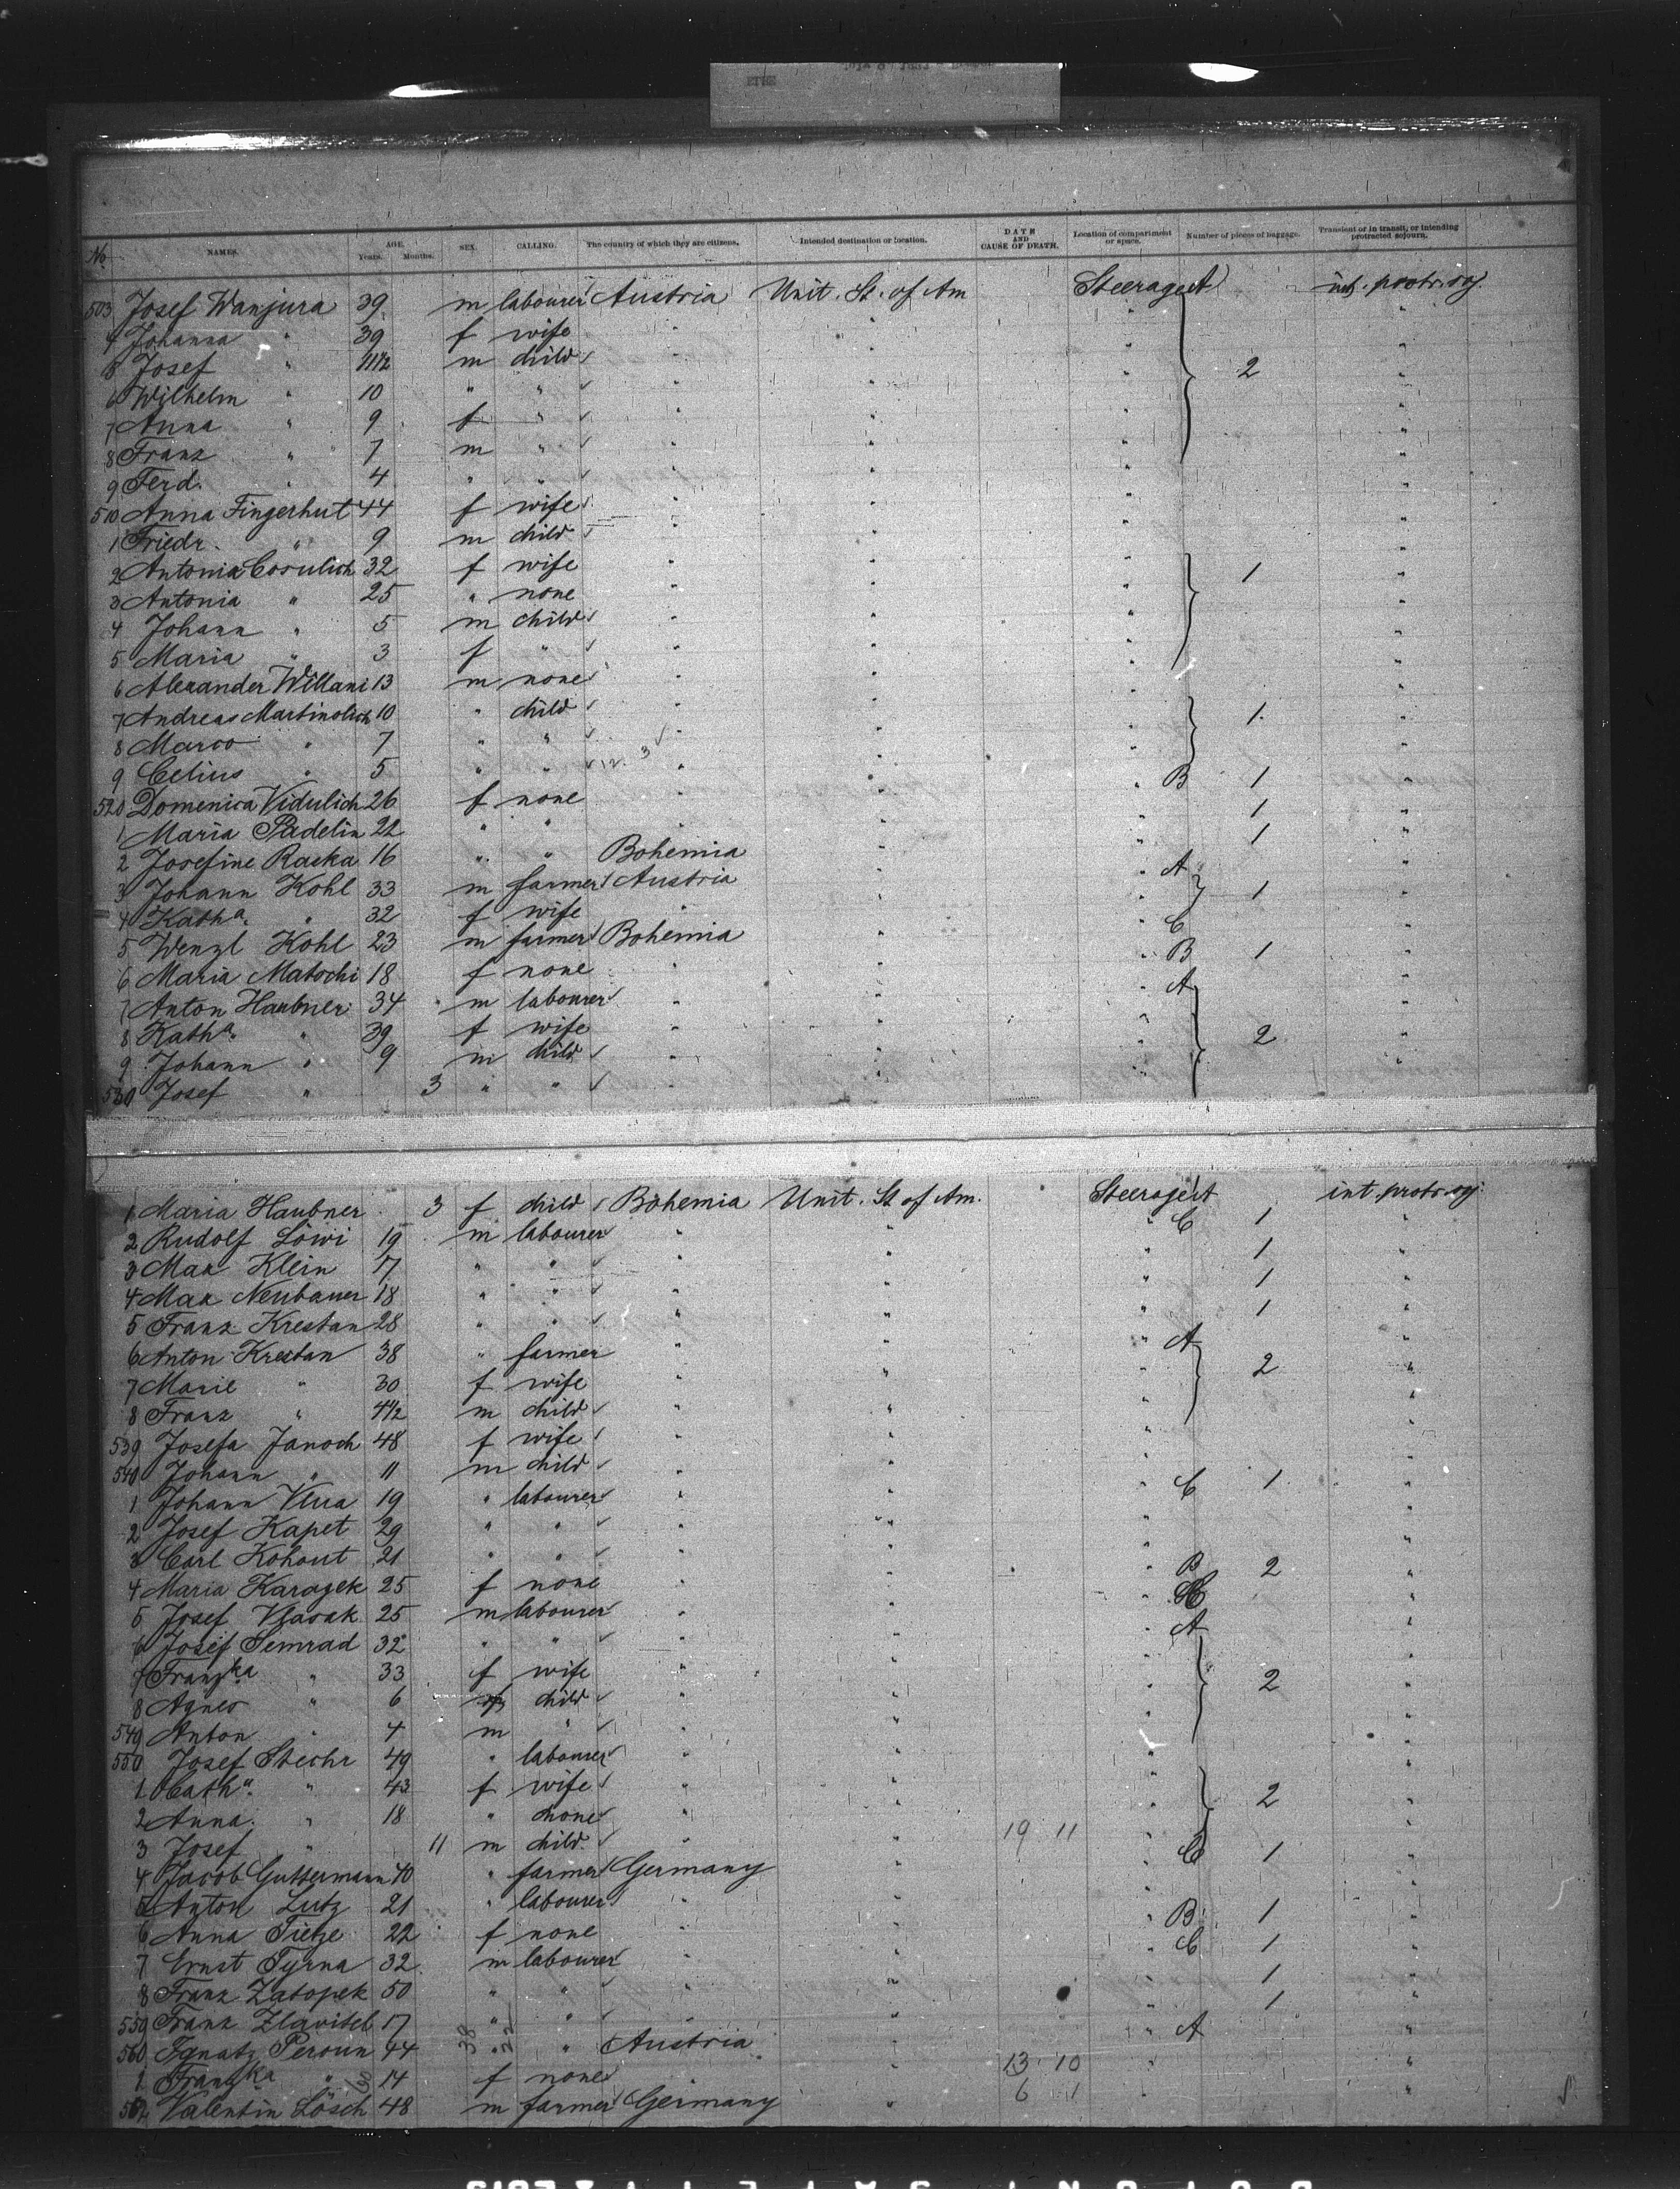 No. NAMES. AGE. Years. Months. SEX. CALLING. The country of which they are citizens. Intended destination or location. DATE AND CAUSE OF DEATH. Location of compartment or space. Number of pieces of baggage. Transient or in transit, or intending protracted sojourn.
503 Josef Wanjura 39 m labourer Austria Unit. St. of Am Steerage A int. protr. soj
4 Johanna " 39 f wife " " " "
5 Josef " 11 1/2 m child " " " 2 "
6 Wilhelm " 10 " " " " " "
7 Anna " 9 f " " " " "
8 Franz " 7 m " " " " "
9 Ferd. " 4 " " " " " "
510 Anna Fingerhut 44 f wife " " " "
1 Friedr. " 9 m child " " " "
2 Antonia Cosulich 32 f wife " " " 1 "
3 Antonia " 25 " none " " " "
4 Johann " 5 m child " " " "
5 Maria " 3 f " " " " "
6 Alexander Willani 13 m none " " " "
7 Andreas Martinolich 10 " child " " " 1 "
8 Marco " 7 " " " " " "
9 Celius " 5 " " " " " "
520 Domenica Vidulich 26 f none " " " B 1 "
1 Maria Padelin 22 " " " " " 1 "
2 Josefine Raska 16 " " Bohemia " " 1 "
3 Johann Kohl 33 m farmer Austria " " A 1 "
4 Katha. " 32 f wife " " " "
5 Wenzl Kohl 23 m farmer Bohemia " " C "
6 Maria Matochi 18 f none " " " B 1 "
7 Anton Haubner 34 m labourer " " " A "
8 Katha. " 39 f wife " " " 2 "
9 Johann " 9 m child " " " "
530 Josef " 3 " " " " " "
1 Maria Haubner 3 f child Bohemia Unit. St. of Am. Steerage A int. protr. soj.
2 Rudolf Löwi 19 m labourer " " " C 1 "
3 Max Klein 17 " " " " " 1 "
4 Max Neubauer 18 " " " " " 1 "
5 Franz Krestan 28 " " " " " 1 "
6 Anton Krestan 38 " farmer " " " A "
7 Marie " 30 f wife " " " 2 "
8 Franz " 4 1/2 m child " " " "
539 Josefa Janoch 48 f wife " " " "
540 Johann " 11 m child " " " "
1 Johann 19 " labourer " " " C 1 "
2 Josef Kapet 29 " " " " " "
3 Carl Kohout 21 " " " " " "
4 Maria Karagek 25 f none " " " B 2 "
5 Josef Vlasak 25 m labourer " " " C "
6 Josef Semrad 32 " " " " " A "
7 Franzka " 33 f wife " " " "
8 Agnes " 6 child " " " 2 "
549 Anton " 4 m " " " " "
550 Josef Stechr 49 " labourer " " " "
1 Catha. " 43 f wife " " " "
2 Anna " 18 " none " " " 2 "
3 Josef " 11 m child " " 19 11 " "
4 Jacob Guttermann 40 " farmer Germany " " C 1 "
5 Anton Lutz 21 " labourer " " " "
6 Anna Tietze 22 f none " " " B 1 "
7 Ernst Tyrna 32 m labourer " " " C 1 "
8 Franz Zatopek 50 " " " " " 1 "
559 Franz Zlavitel 17 " " " " " 1 "
560 Ignatz Peroun 44 38 22 " " Austria " " A "
1 Franzka " 14 f none " 13 10 " "
562 Valentin Lösch 48 m farmer Germany " 6 1 " "